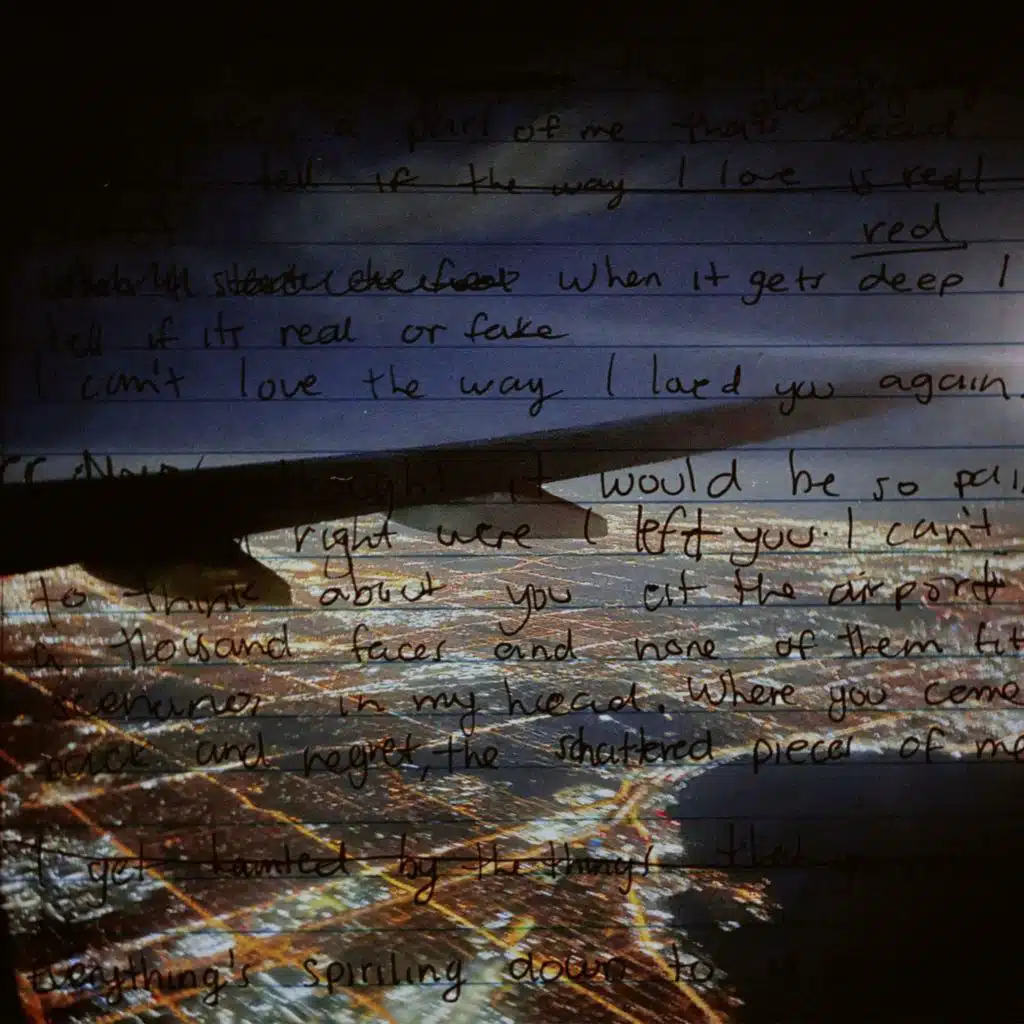 a part of me that's dead
tell if the way I love is real
red
when it gets deep I
tell if its real or fake
I can't love the way I loved you again.
thought it would be so pai
right were I left you. I can't
to think about you at the airport
a thousand faces and none of them fit
in my head. Where you come
back and regret, the schattered pieces of me
I get taunted by the things that
everything's spiriling down to